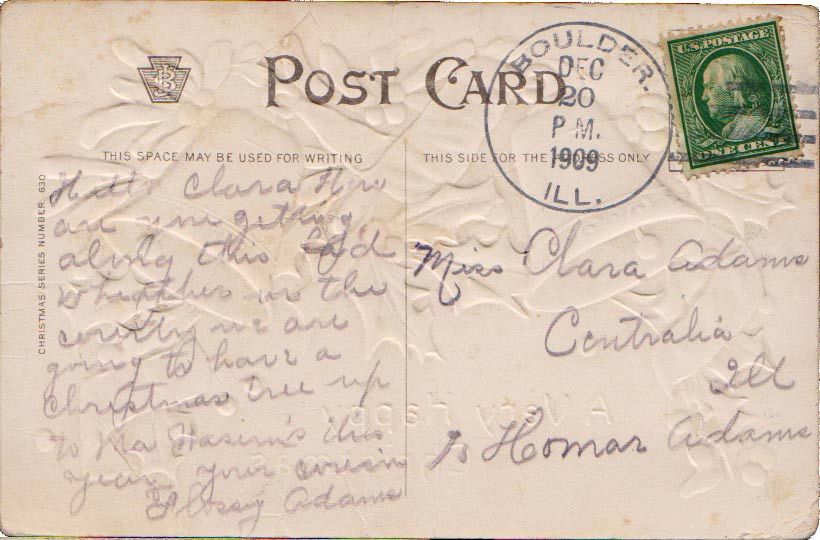 POST CARD
THIS SPACE MAY BE USED FOR WRITING
THIS SIDE FOR THE ADDRESS ONLY
CHRISTMAS SERIES NUMBER 630
BOULDER.
DEC
20
P.M.
1909
ILL.
U.S. POSTAGE
ONE CENT
Hello Clara How
are you getting
along this cold
wheather in the
we are
going to have a
Christmas tree up
to Ma this
year your cousin
Flossy Adams
Miss Clara Adams
Centralia
Ill
Homar Adams
A Very Happy